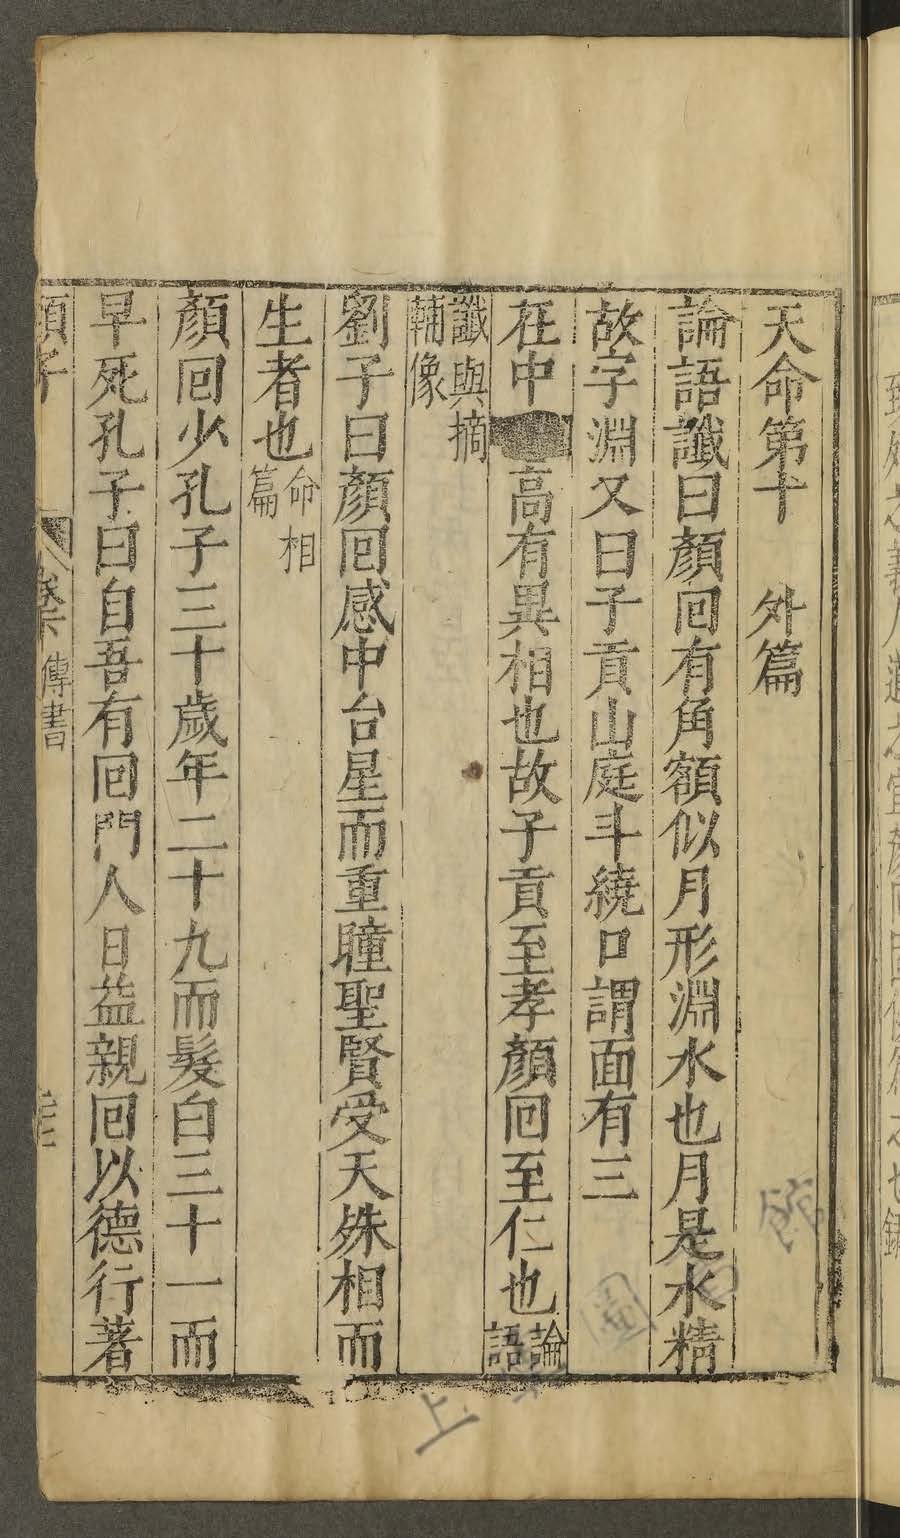 天命第十　外篇
論語讖曰顏回有角額似月形淵水也月是水精
故字淵又曰子貢山庭斗繞口謂面有三
在中高有異相也故子貢至孝顏回至仁也論語
讖與摘輔像
劉子曰顏回感中台星而重瞳聖賢受天殊相而
生者也命相篇
顏回少孔子三十歲年二十九而髮白三十一而
早死孔子曰自吾有回門人日益親回以德行著
顏子
傳書
上
圖
館